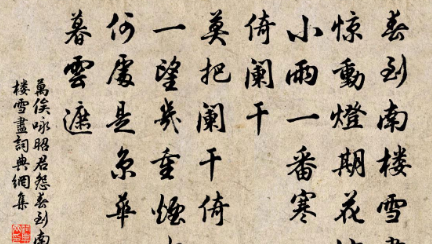 春到南楼雪盡
惊動燈期花
小雨一番寒
倚阑干
莫把阑干倚
一望幾重煙
何處是京華
暮雲遮
萬俟咏昭君怨春到南
楼雪盡詞典網集